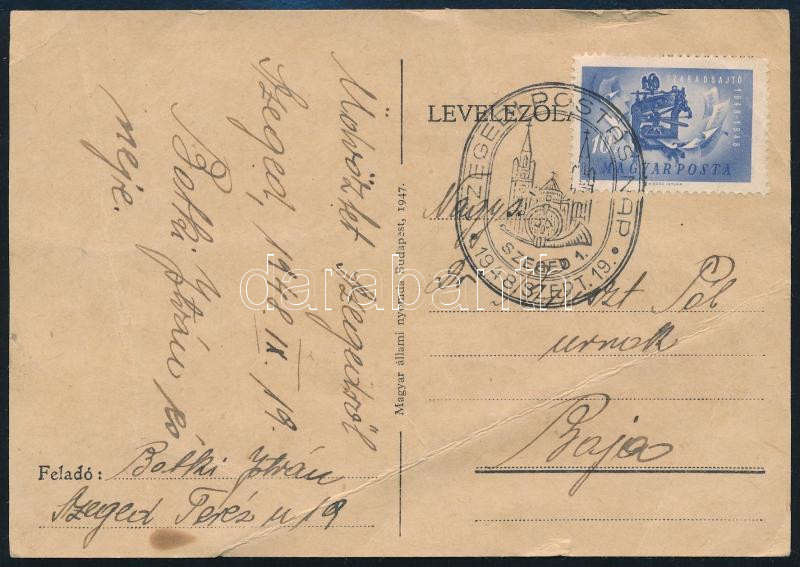 Üdvözlet Szegedről
Szeged, 1948. IX. 19.
Botki István
neje.
Feladó: Botki István
Szeged Teréz u 19
Magyar állami nyomda Budapest, 1947.
LEVELEZŐL
SZEGEDI POSTÁS NAP
SZEGED 1.
1948 SZEPT. 19.
SZABADSAJTÓ
1848-1948
10
MAGYAR POSTA
Nagys
Pál
urnak
Baja
darabanth